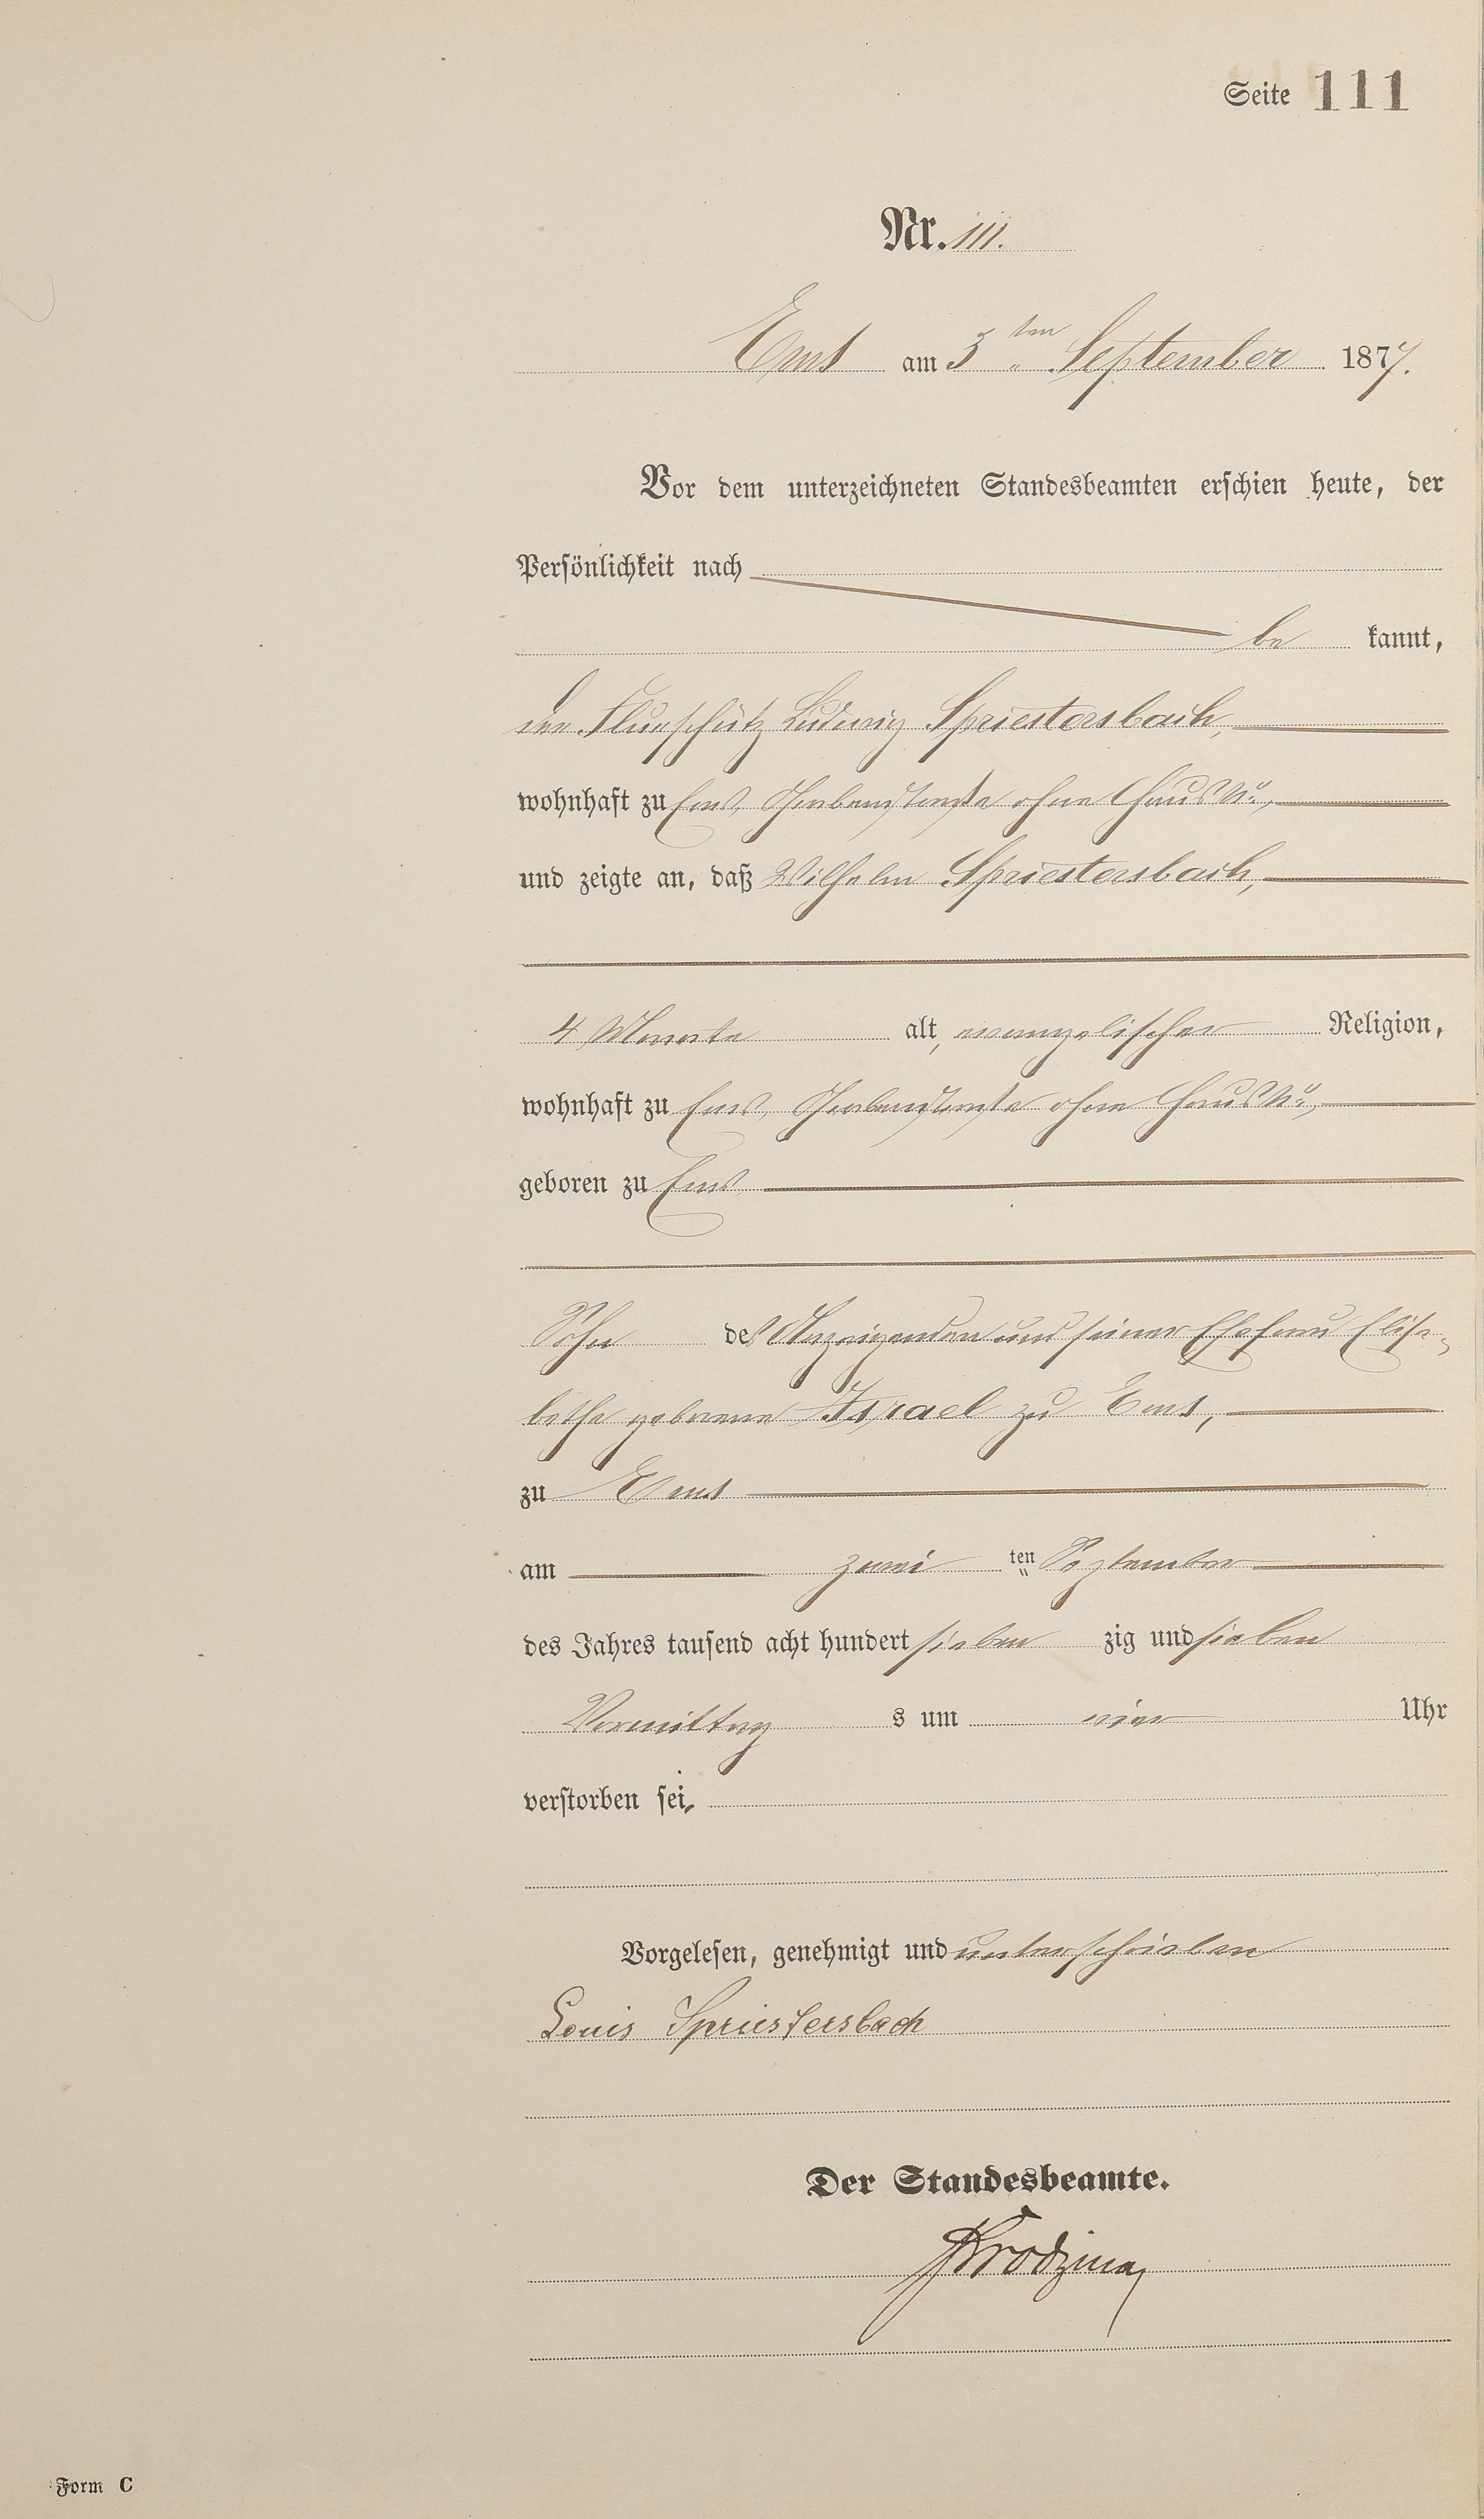 Seite 111
Nr. 111.
Ems am 3 ten September 1877.
Vor dem unterzeichneten Standesbeamten erschien heute, der
Persönlichkeit nach
be kannt,
der Flurschütz Ludwig Spriestersbach,
wohnhaft zu Ems, Grabenstraße ohne Haus No,
und zeigte an, daß Wilhelm Spriestersbach,
4 Monate alt, evangelischer Religion,
wohnhaft zu Ems, Grabenstraße ohne Haus No,
geboren zu Ems
Sohn des Anzeigenden und seiner Ehefrau Elisa-
betha geborene Israel zu Ems,
zu Ems
am zwei ten September
des Jahres tausend acht hundert sieben zig und sieben
Vormittag s um vier Uhr
verstorben sei.
Vorgelesen, genehmigt und unterschrieben
Louis Spriestersbach
Der Standesbeamte.
Form C